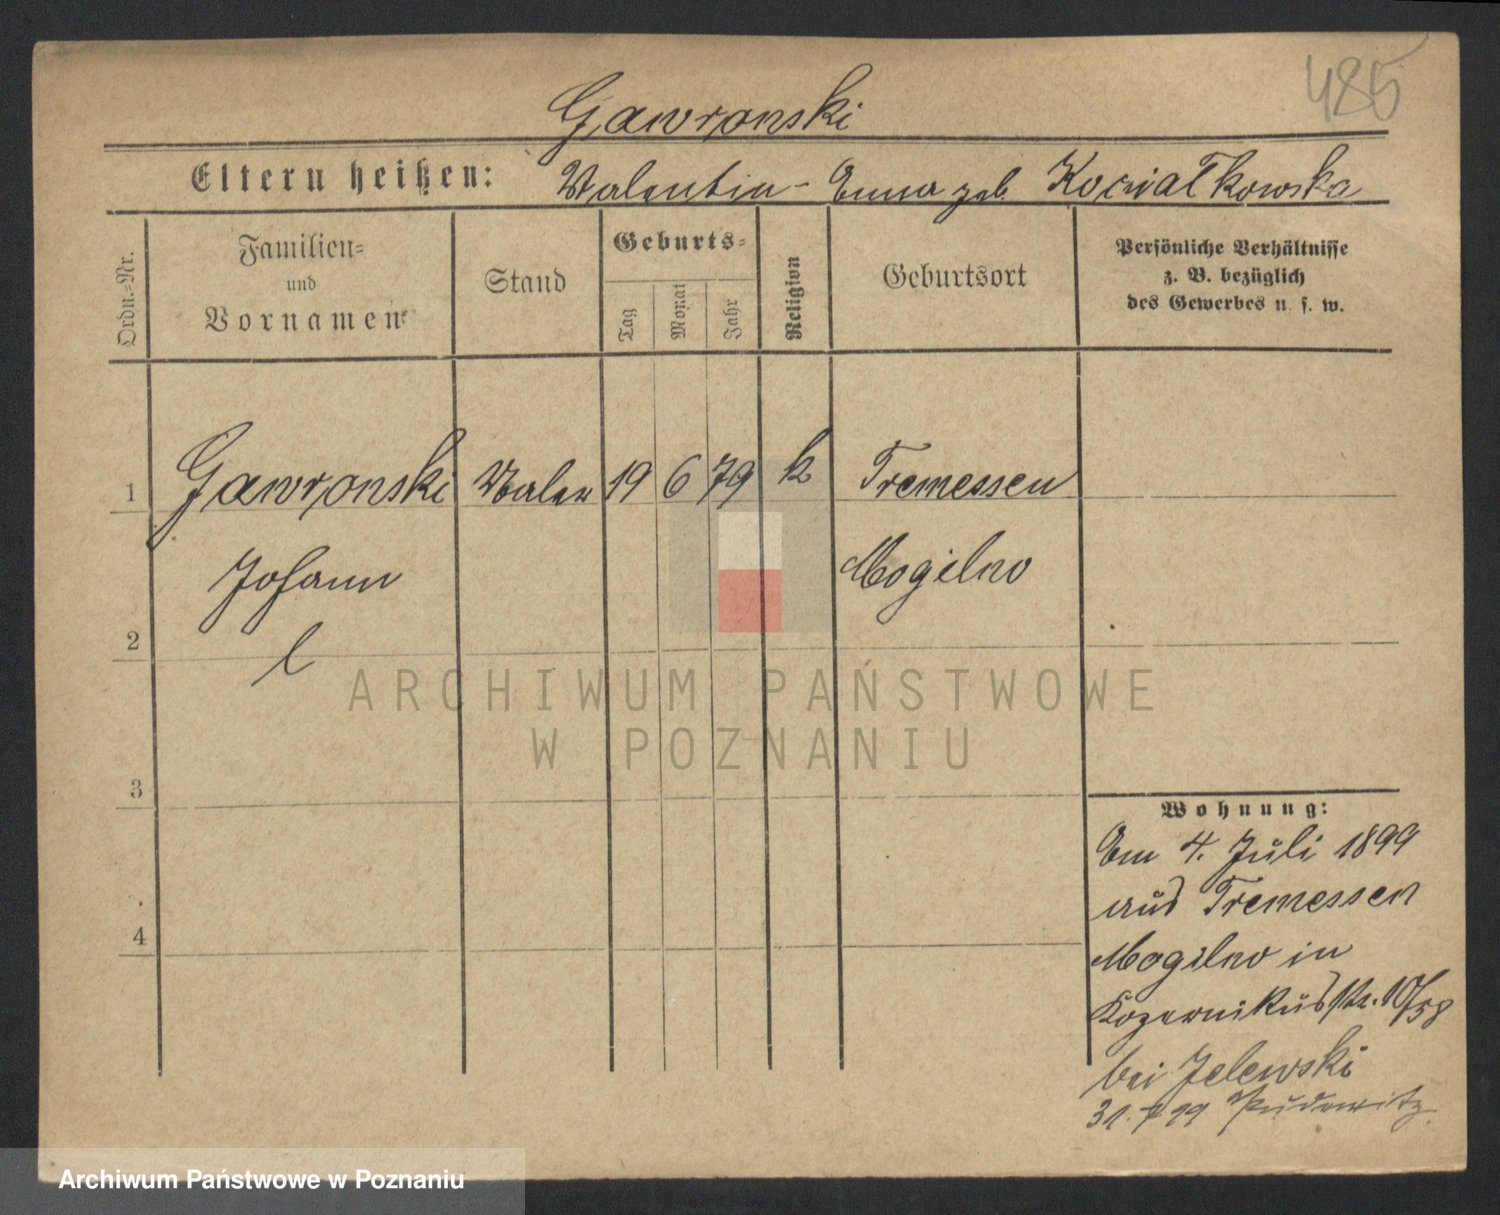 485
Gawronski
Eltern heißen: Valentin - Anna geb. Kocialkowska
Ordn.-Nr.
Familien-
und
Vornamen
Stand
Geburts-
Tag
Monat
Jahr
Religion
Geburtsort
Persönliche Verhältnisse
z. B. bezüglich
des Gewerbes u. s. w.
1 Gawronski Maler 19 6 79 k Tremessen
Johann Mogilno
2 l
ARCHIWUM PAŃSTWOWE
W POZNANIU
3
Wohnung:
Am 4. Juli 1899
aus Tremessen
4
Mogilno in
Kopernikusstr. 10/58
bei Jelewski
31. 7 99 Pudewitz.
Archiwum Państwowe w Poznaniu